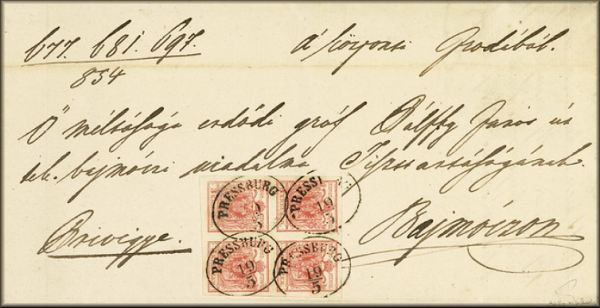 677. 681. 697.
854
a' központi Irodából.
Ő méltósága erdődi gróf Pálffy János úr
bajmóczi uradalma Tisztartóságának
Privigye.
Bajmóczon
PRESSBURG
19
5
PRESSBURG
19
5
PRESSBURG
19
5
PRESSBURG
19
5